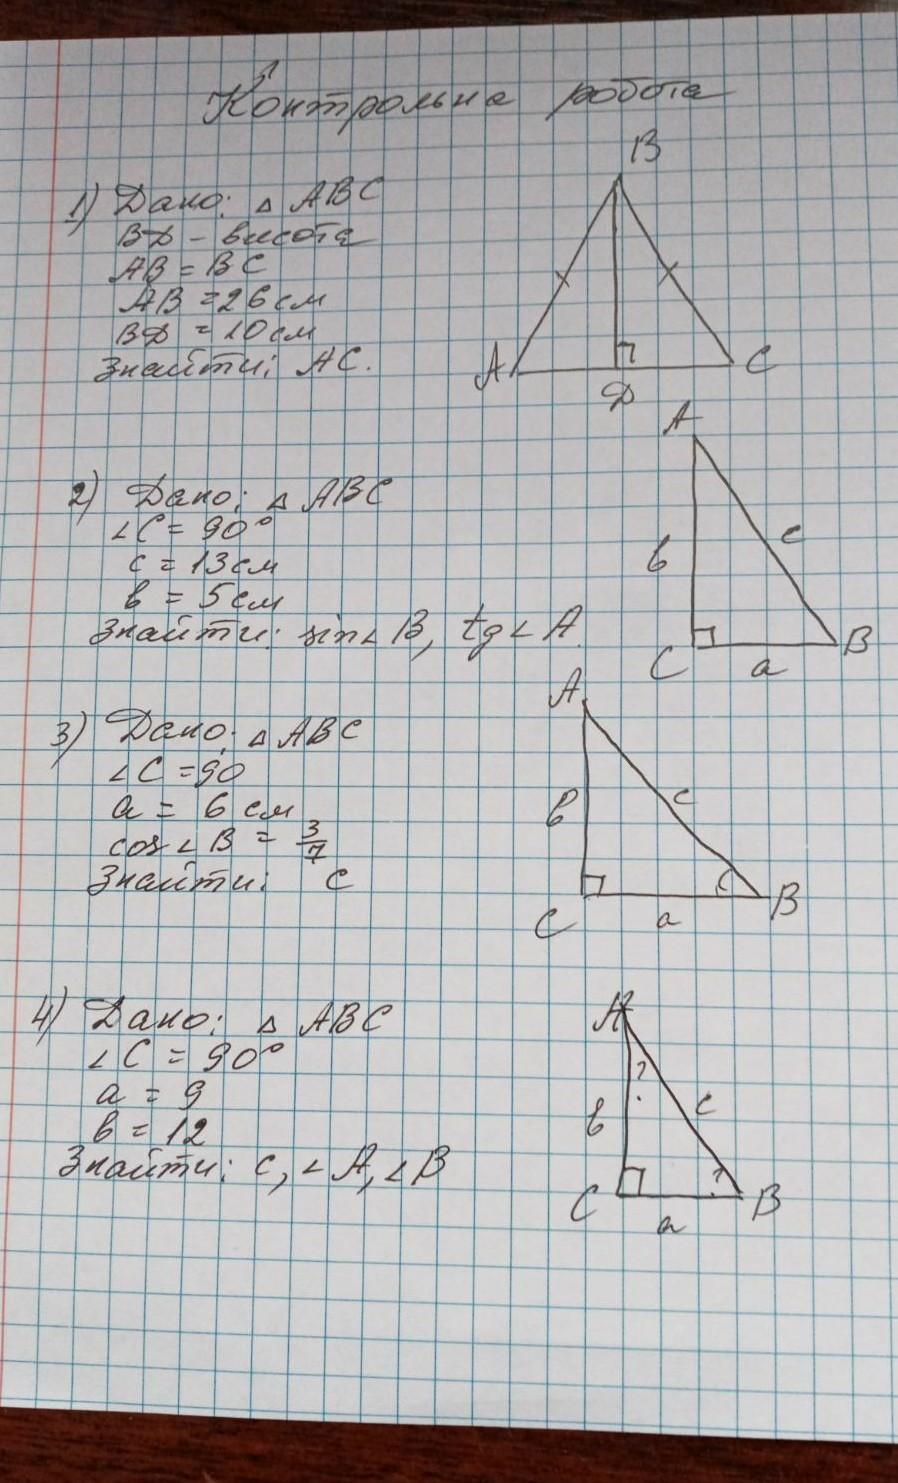 Контрольна робота
1) Дано: △ ABC
BD - висота
AB = BC
AB = 26 см
BD = 10 см
Знайти: AC.
B
A
C
D
2) Дано: △ ABC
∠C = 90°
c = 13 см
b = 5 см
Знайти: sin∠B, tg∠A.
A
b
c
C
a
B
3) Дано: △ ABC
∠C = 90
a = 6 см
cos∠B = 3/7
Знайти: c
A
b
c
C
a
B
4) Дано: △ ABC
∠C = 90°
a = 9
b = 12
Знайти: c, ∠A, ∠B
A
?
b
c
?
C
a
B